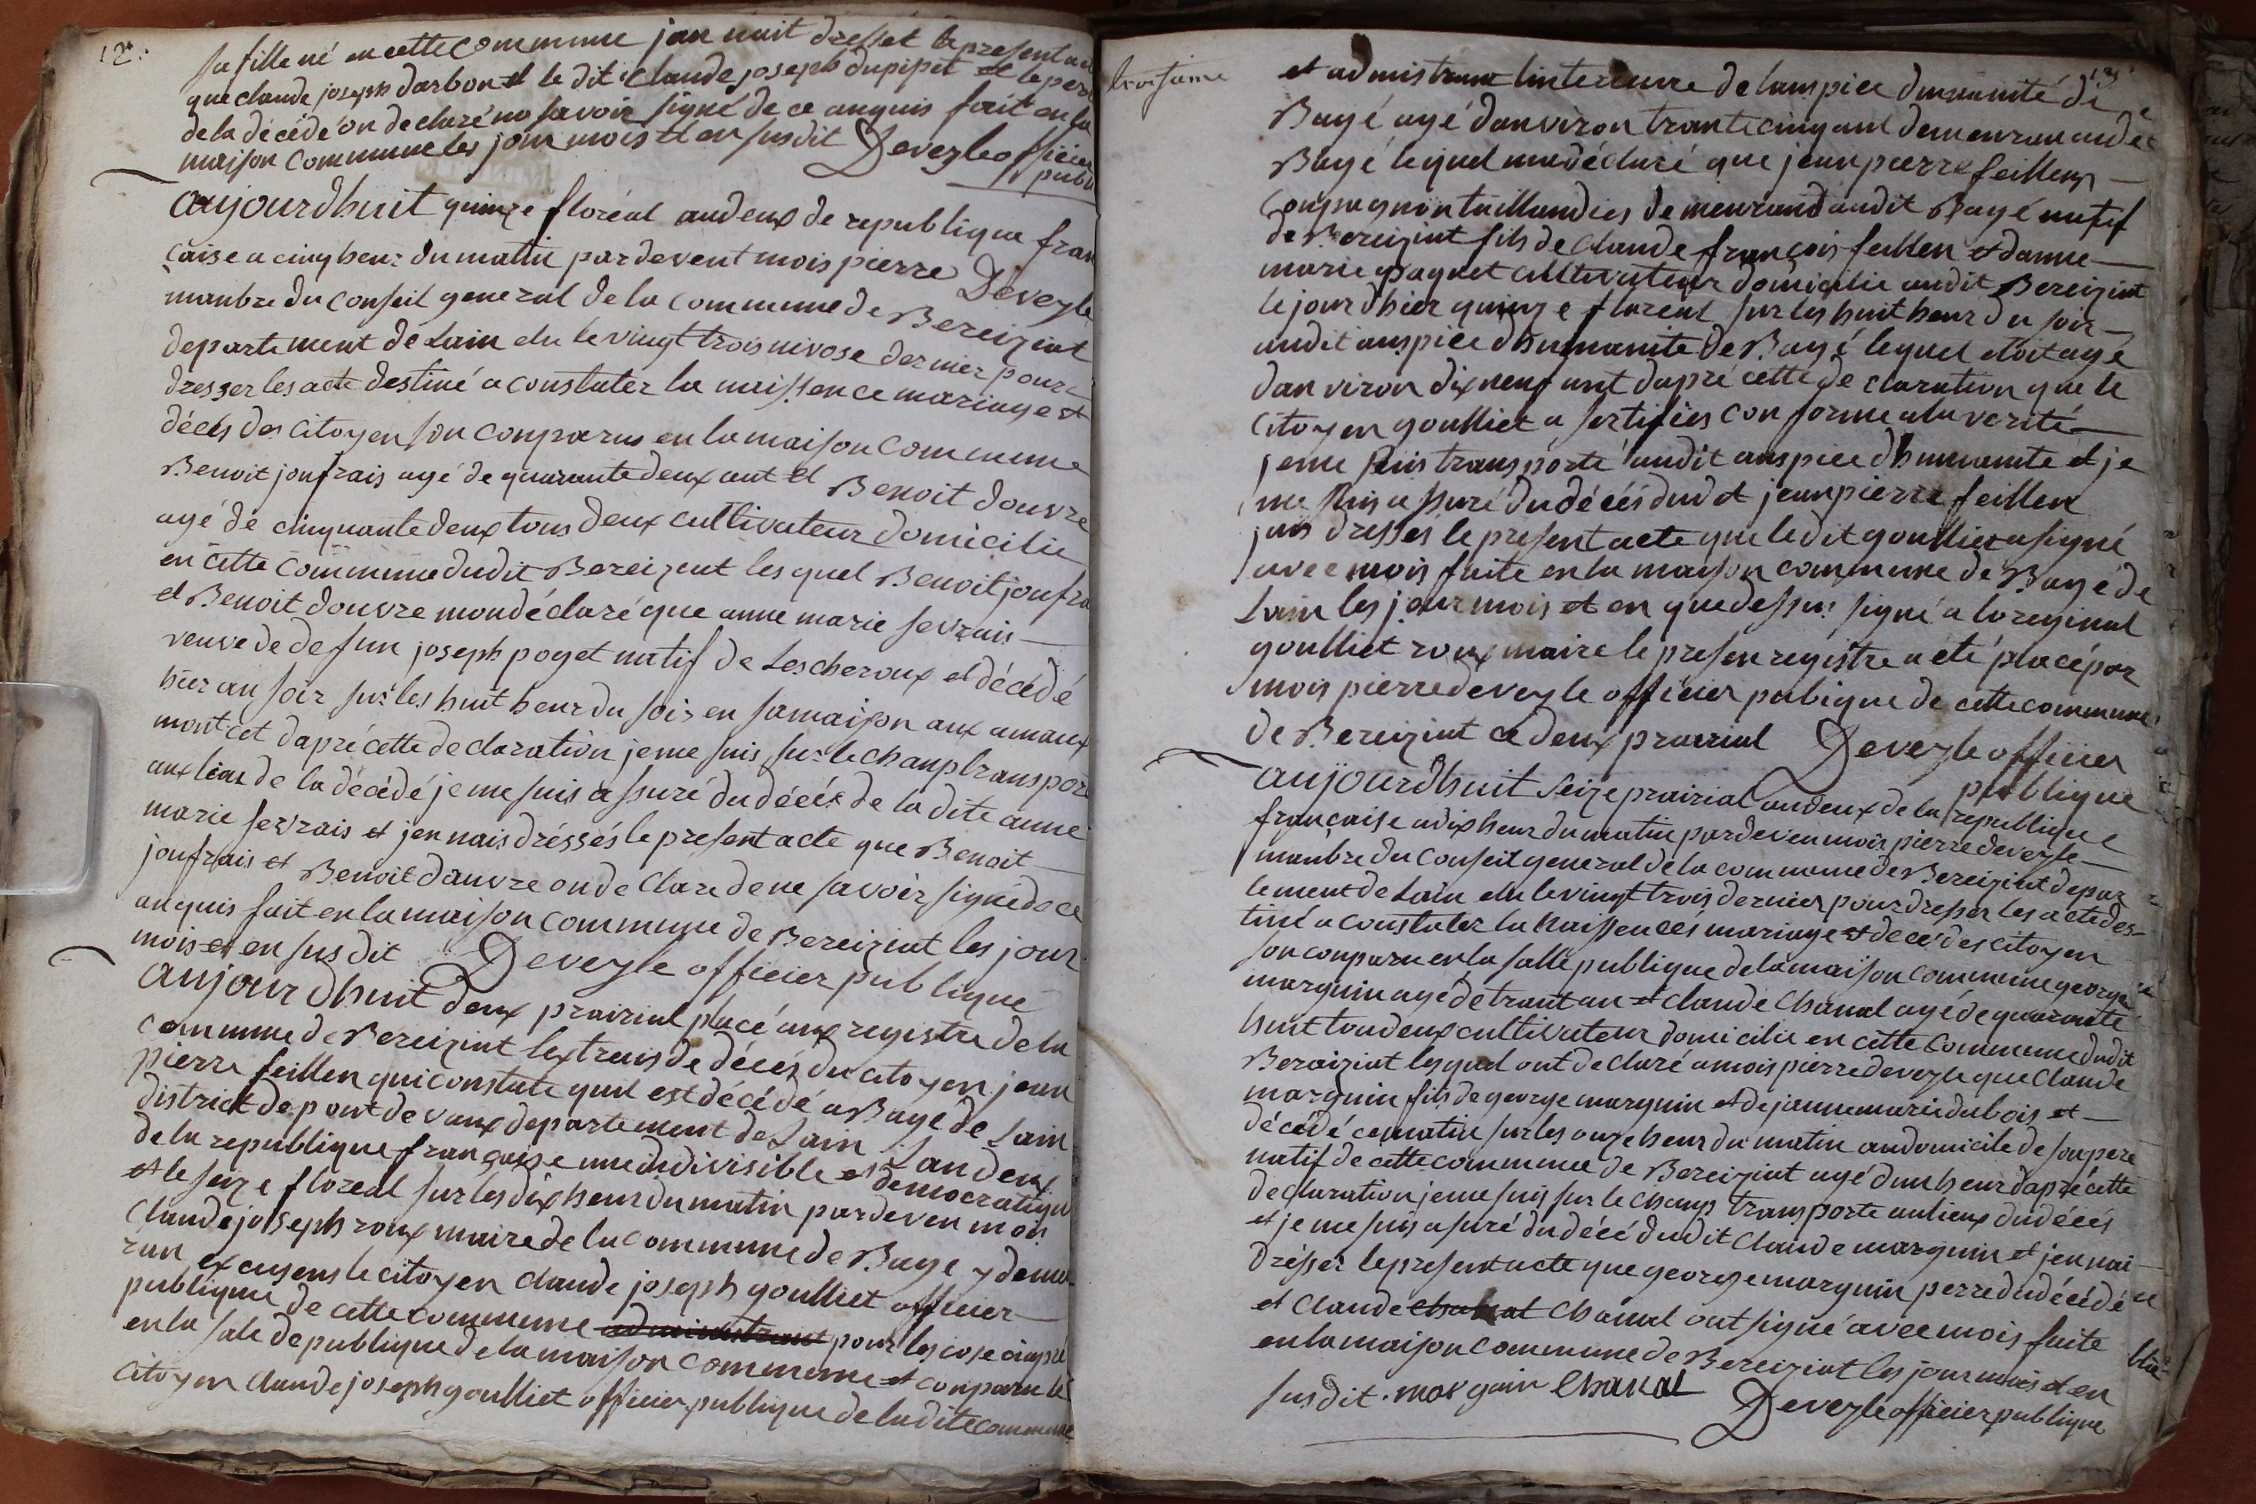 12.
sa fille né en cette commune jan nait dresset le present ac
que claude joseph darbon et le dit claude joseph dupipet et le pere
de la décédé on declaré no savoir signé de ce anquis fait en la
maison commune les jour mois et en susdit Deveyle officier
publ
aujourdhuit quinze floréal andeux de republique fran
caise a cinq heur du matin pardevent mois pierre Deveyle
manbre du conseil general de la commune de Bereiziat
departement de Lain elu le vingt trois nivose dernier pour
dresser les acte destiné a constater la naissence mariage et
décés des citoyen son conparus en la maison commune
Benoit joufrais agé de quarante deux ant et Benoit douvre
agé de cinquante deux tous deux cultivateur domicilie
en cette commune dudit Bereiziat les quel Benoit joufra
et Benoit douvre mon déclaré que anne marie sevrais
veuve de defun joseph poget natif de Lescheroux et décédé
hier au soir sur les huit heur du soir en sa maison aux amaux
montcet dapré cette declaration je me suis sur le chanp transpor
aux lieux de la décédé je me suis assuré du décés de la dite anne
marie sevrais et jen nais dréssés le present acte que Benoit
joufrais et Benoit douvre on declaré de ne savoir signé de ce
anquis fait en la maison commune de Bereiziat les jour
mois et en susdit Deveyle officier publique
aujourdhuit deux prairial placé aux registre de la
commune de Bereiziat lextrais de décés du citoyen jean
pierre feillen qui constate quil est décédé a Bagé de Lain
district de pont de vaux departement de Lain Landeux
de la republique française une indivisible et democratique
et le seize floreal sur les dix heur du matin pardeven mois
claude joseph roux maire de la commune de Bage y demeu
ran excusens le citoyen claude joseph goulliet officier
publique de cette commune administrant pour les cose
en la sale de publique de la maison commune et conparu le
citoyen claude joseph goulliet officier publique de ladite commune
et administrant linterieure de lauspice dumanité de
Bagé agé danviron trante cinq ant demeuran audit
Bagé lequel ma déclaré que jean pierre feillens
conpagnion taillandier demeurand audit Bagé natif
de Bereiziat fils de claude françois feillen et danne
marie paquet cultivateur domicilie audit Bereiziat
le jour dhier quinze floreal sur les huit heur du soir
audit auspice dhumanite de Bagé lequel etoit agé
danviron dixneuf ant dapré cette declaration que le
citoyen goulliet a sertifiés conforme a la verité
je me suis transporté audit auspice dhumanite et je
me suis assuré du décés dudit jean pierre feillen
jais dresses le present acte que le dit goulliet a signé
avec mois faite en la maison commune de Bagé de
Lain les jour mois et en que dessus signé a loreginal
goulliet roux maire le presen registre a été placé par
mois pierre deveyle officier publique de cette commune
de Bereiziat ce deux prairial Deveyle officier
publique
aujourdhuit seize prairial andeux de la republique
française a dix heur du matin pardeven mois pierre deveyle
manbre du conseil general de la commune de Bereiziat depar
tement de Lain elu le vingt trois dernier pour dresser les acte des
tiné a constater la naissences mariage et décé des citoyen
son conparu en la salle publique de la maison commune george
marguin agé de trant an et claude chanal agé de quarante
huit tou deux cultivateur domicilie en cette commune dudit
Bereiziat lesquel ont declaré a mois pierre deveyle que claude
marguin fils de george marguin et de jeanne marie dubois et
décédé ce matin sur les onze heur du matin au domicile de son pere
natif de cette commune de Bereiziat agé dun heur dapré cette
declaration je me suis sur le champ transporte au lieux du décés
et je me suis asuré du décé dudit claude marguin et jen nai
drésser le present acte que george marguin perre du décédé
et claude chanal chanal ont signé avec mois faite
en la maison commune de Bereiziat les jour mois et en
susdit. margain chanal Deveyle officier publique